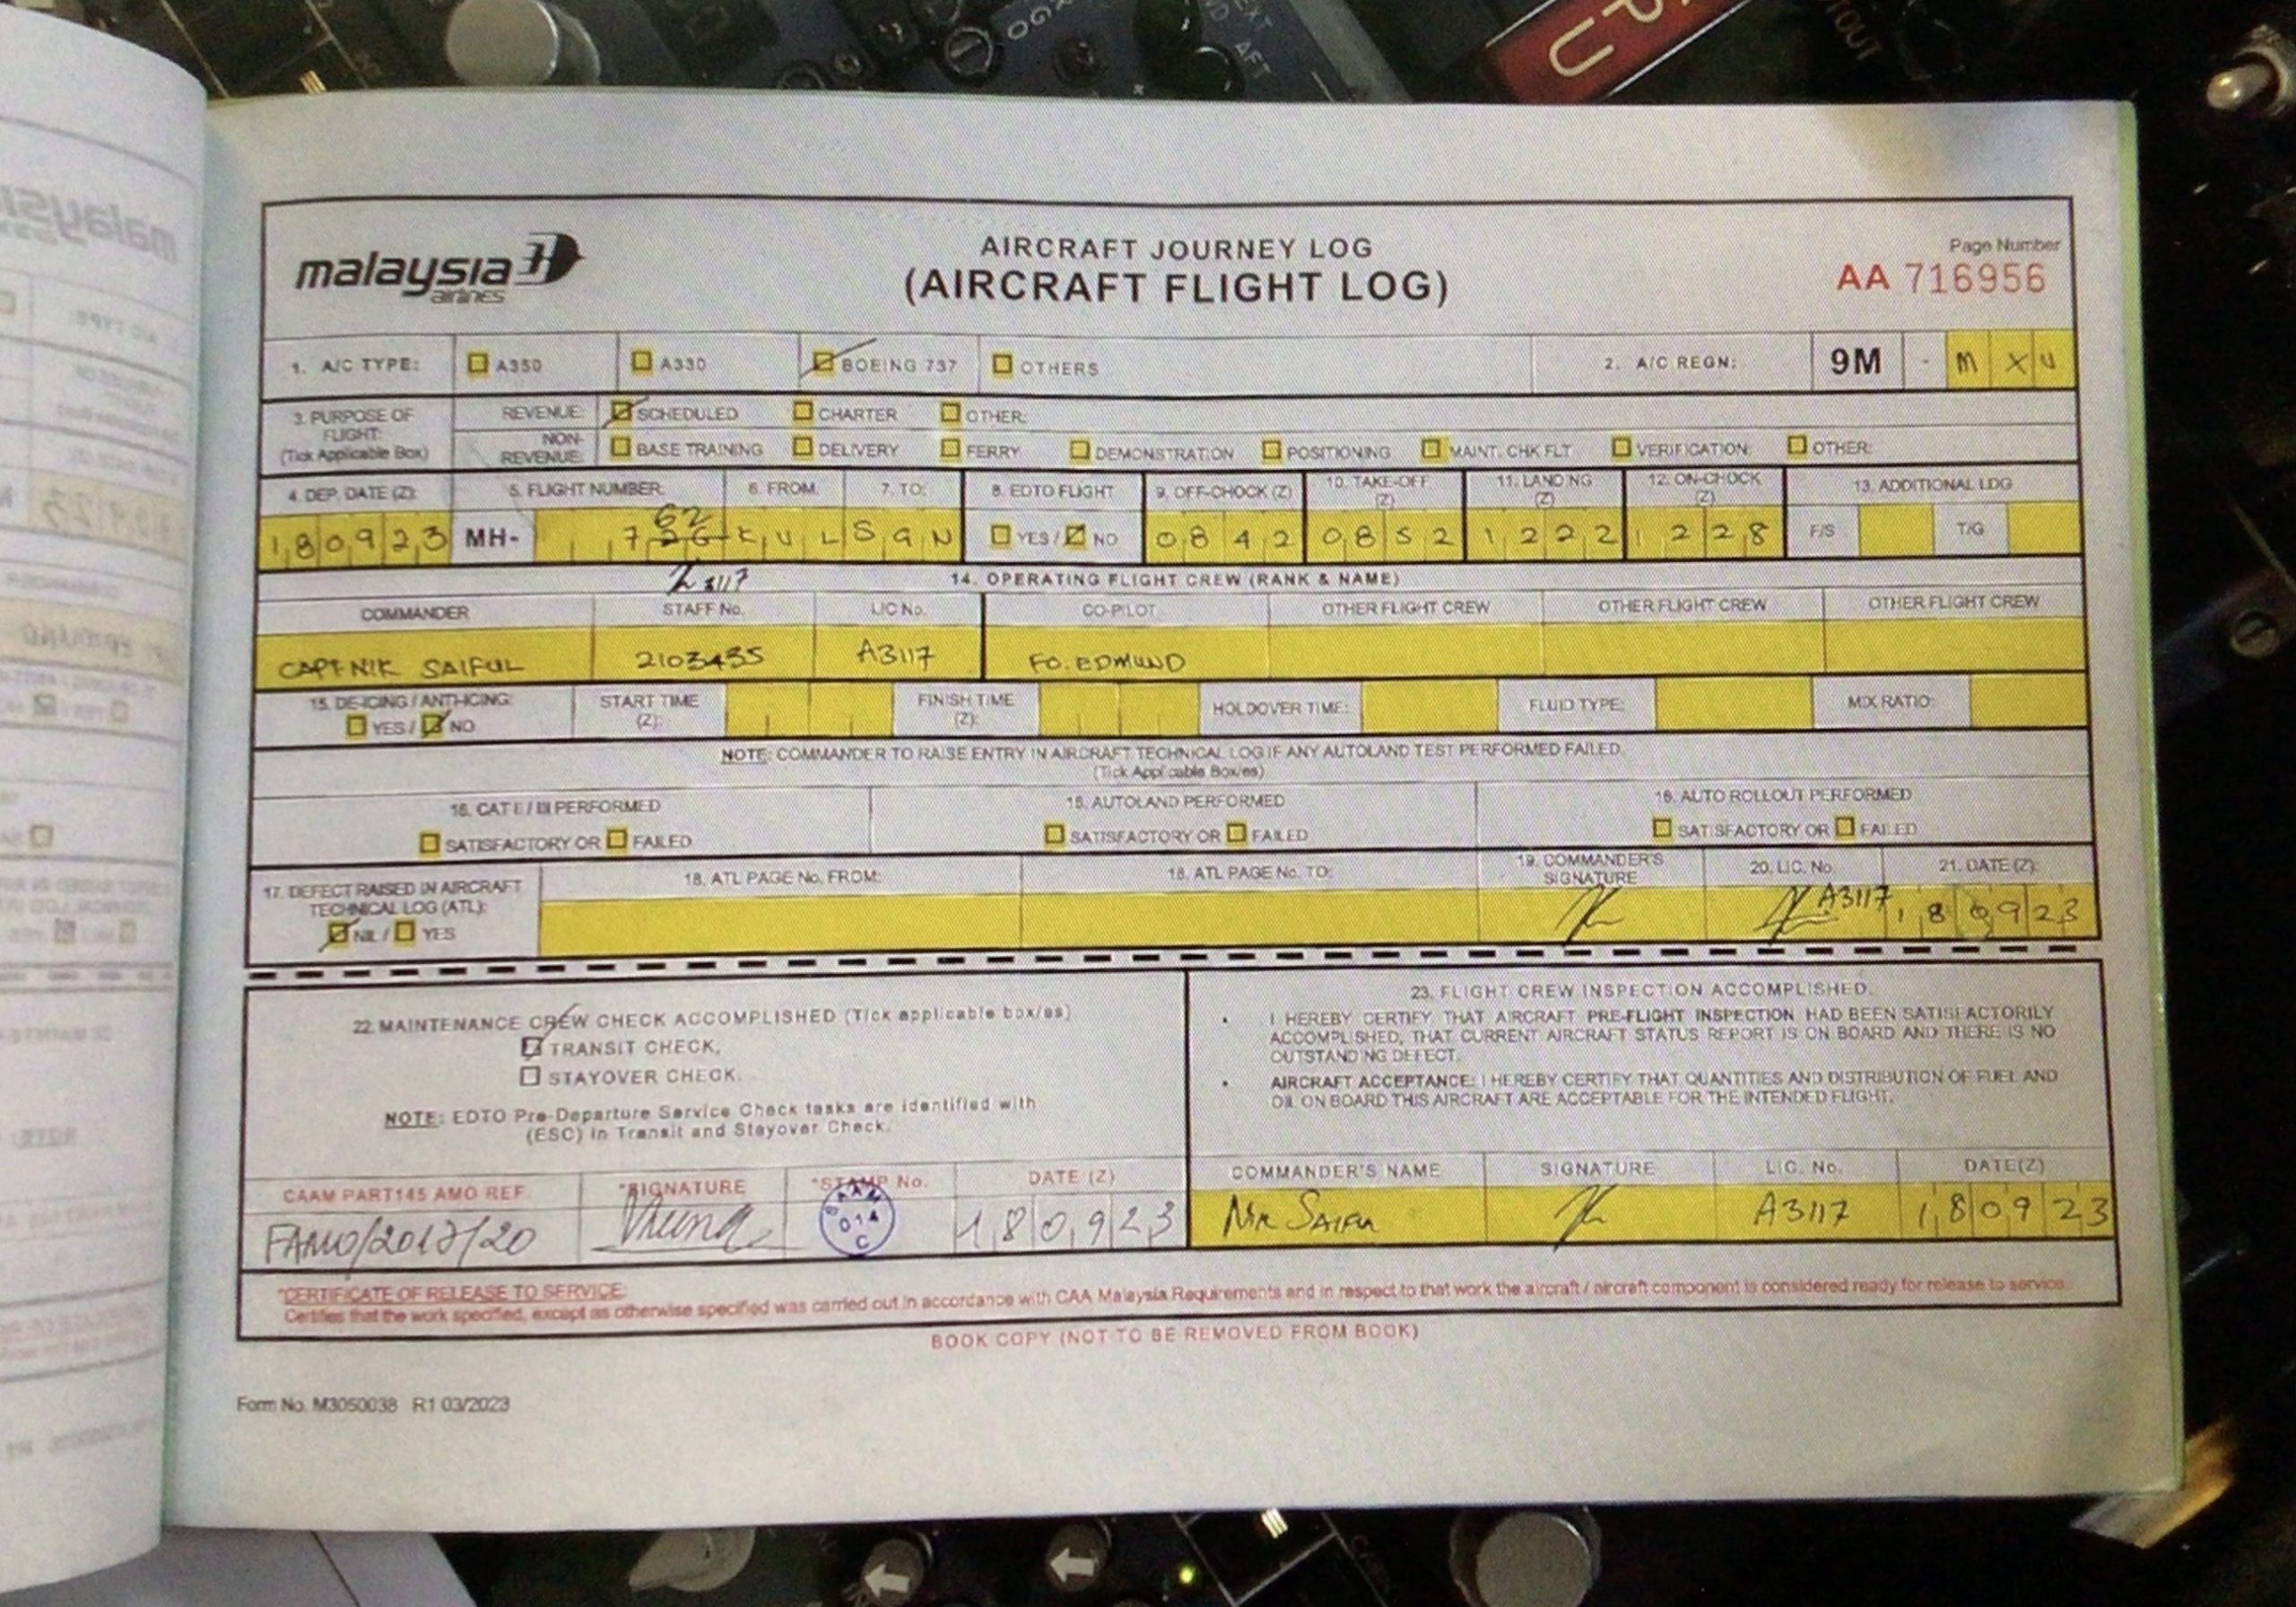 malaysia
airlines
AIRCRAFT JOURNEY LOG
(AIRCRAFT FLIGHT LOG)
Page Number
AA 716956
1. A/C TYPE: A350 A330 BOEING 737 OTHERS 2. A/C REGN: 9M - M X U
3. PURPOSE OF FLIGHT: (Tick Applicable Box)
REVENUE: SCHEDULED CHARTER OTHER:
NON-REVENUE: BASE TRAINING DELIVERY FERRY DEMONSTRATION POSITIONING MAINT. CHK FLT VERIFICATION: OTHER:
4. DEP. DATE (Z): 5. FLIGHT NUMBER: 6. FROM: 7. TO: 8. EDTO FLIGHT 9. OFF-CHOCK (Z) 10. TAKE-OFF (Z) 11. LANDING (Z) 12. ON-CHOCK (Z) 13. ADDITIONAL LDG
62
180923 MH- 7 26 KUL SGN YES / NO 0842 0852 1222 1228 F/S T/G
3117
14. OPERATING FLIGHT CREW (RANK & NAME)
COMMANDER STAFF No. LIC No. CO-PILOT OTHER FLIGHT CREW OTHER FLIGHT CREW OTHER FLIGHT CREW
CAPT NIK SAIFUL 2103435 A3117 FO. EDMUND
15. DE-ICING / ANTI-ICING: START TIME (Z): FINISH TIME (Z): HOLDOVER TIME: FLUID TYPE: MIX RATIO:
YES / NO
NOTE: COMMANDER TO RAISE ENTRY IN AIRCRAFT TECHNICAL LOG IF ANY AUTOLAND TEST PERFORMED FAILED.
(Tick Applicable Box/es)
16. CAT II / III PERFORMED 16. AUTOLAND PERFORMED 16. AUTO ROLLOUT PERFORMED
SATISFACTORY OR FAILED SATISFACTORY OR FAILED SATISFACTORY OR FAILED
17. DEFECT RAISED IN AIRCRAFT TECHNICAL LOG (ATL): 18. ATL PAGE No. FROM: 18. ATL PAGE No. TO: 19. COMMANDER'S SIGNATURE 20. LIC. No. 21. DATE (Z):
NIL / YES A3117 180923
22. MAINTENANCE CREW CHECK ACCOMPLISHED (Tick applicable box/es)
TRANSIT CHECK.
STAYOVER CHECK.
NOTE: EDTO Pre-Departure Service Check tasks are identified with
(ESC) in Transit and Stayover Check.
CAAM PART145 AMO REF. *SIGNATURE *STAMP No. DATE (Z)
FAMO/2017/20 014 C 180923
23. FLIGHT CREW INSPECTION ACCOMPLISHED.
• I HEREBY CERTIFY THAT AIRCRAFT PRE-FLIGHT INSPECTION HAD BEEN SATISFACTORILY
ACCOMPLISHED, THAT CURRENT AIRCRAFT STATUS REPORT IS ON BOARD AND THERE IS NO
OUTSTANDING DEFECT.
• AIRCRAFT ACCEPTANCE: I HEREBY CERTIFY THAT QUANTITIES AND DISTRIBUTION OF FUEL AND
OIL ON BOARD THIS AIRCRAFT ARE ACCEPTABLE FOR THE INTENDED FLIGHT.
COMMANDER'S NAME SIGNATURE LIC. No. DATE(Z)
NIK SAIFUL A3117 180923
*CERTIFICATE OF RELEASE TO SERVICE:
Certifies that the work specified, except as otherwise specified was carried out in accordance with CAA Malaysia Requirements and in respect to that work the aircraft / aircraft component is considered ready for release to service.
BOOK COPY (NOT TO BE REMOVED FROM BOOK)
Form No. M3050038 R1 03/2023
AFT